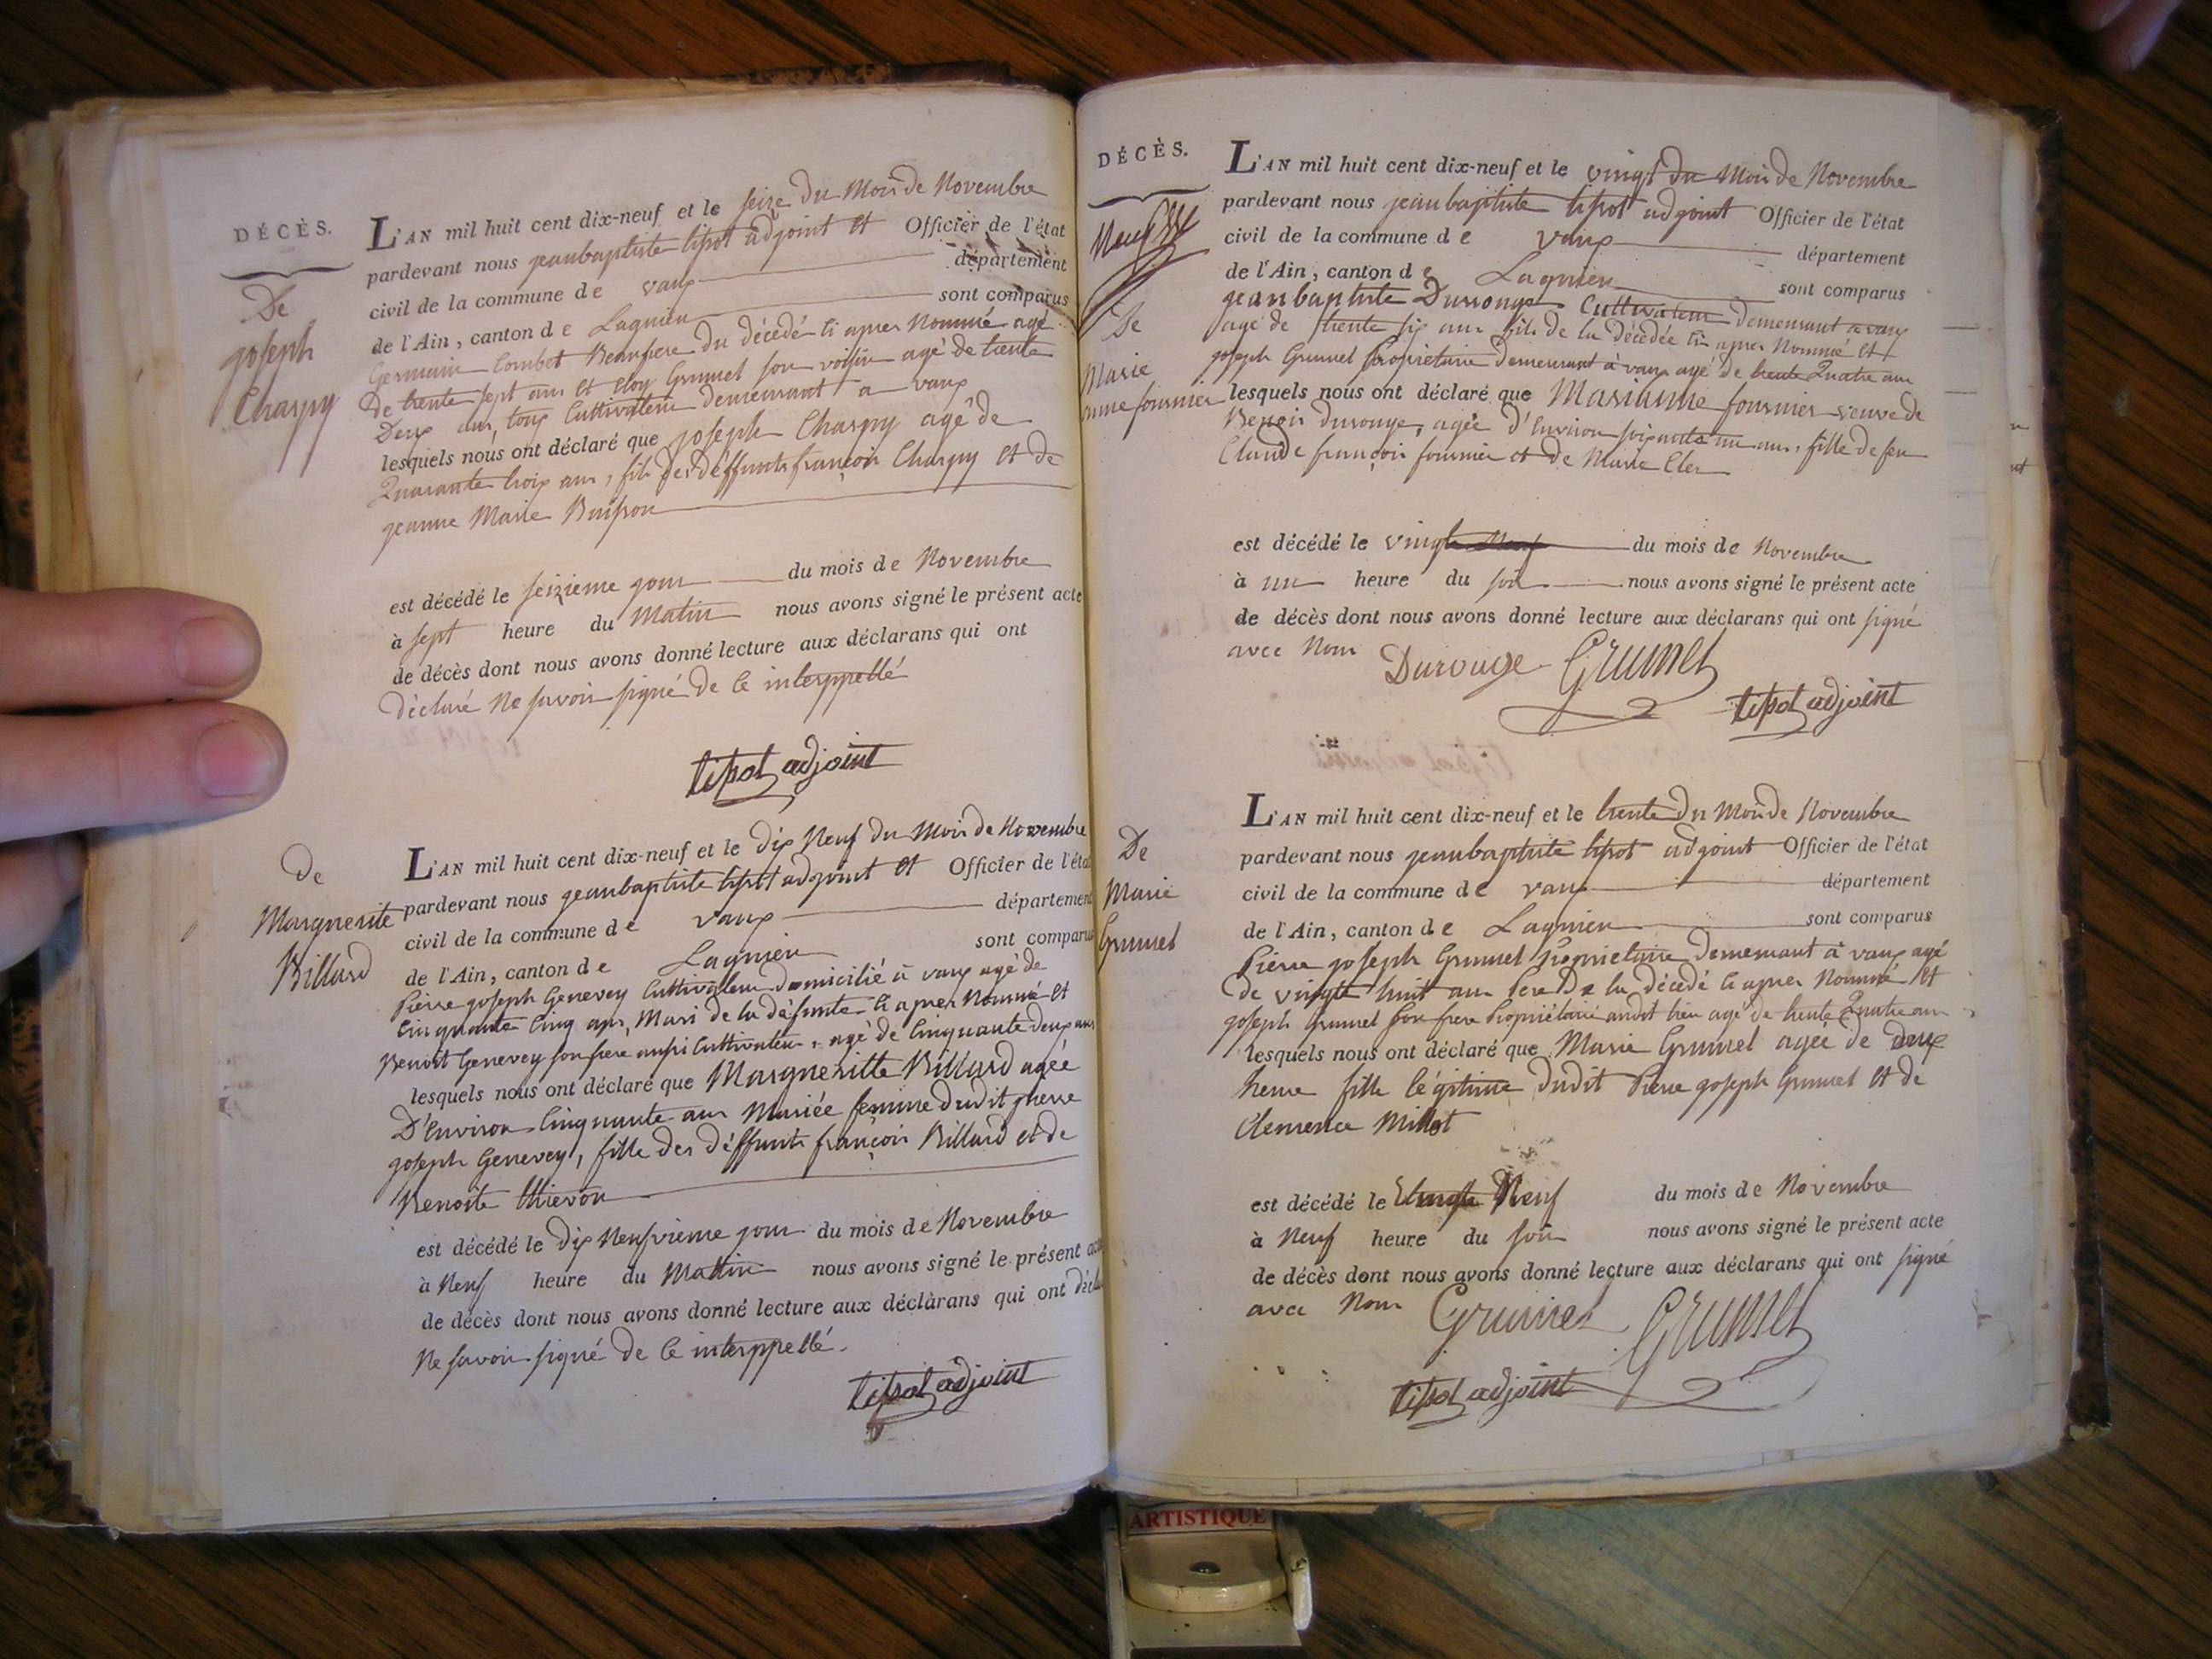 DÉCÈS.
De
joseph
Charpy
L'AN mil huit cent dix-neuf et le seize du Mois de Novembre
pardevant nous jeanbaptiste tipot adjoint et Officier de l'état
civil de la commune de vaux département
de l'Ain, canton de Lagnieu sont comparus
Germain Combet Beaufrere du décédé ci apres Nommé agé
De trente sept ans et Eloy Grumel son voisin agé de trente
Deux ans, tous Cultivateur demeurant a vaux
lesquels nous ont déclaré que joseph Charpy agé de
Quarante trois ans, fils des déffunts françois Charpy et de
jeanne Marie Buisson
est décédé le seizieme jour du mois de Novembre
à sept heure du Matin nous avons signé le présent acte
de décès dont nous avons donné lecture aux déclarans qui ont
déclaré Ne savoir signé de ce interppellé
tipot adjoint
de
Marguerite
Billard
L'AN mil huit cent dix-neuf et le dix Neuf du Mois de Novembre
pardevant nous jeanbaptiste tipot adjoint et Officier de l'état
civil de la commune de vaux département
de l'Ain, canton de Lagnieu sont comparus
Pierre joseph Genevey Cultivateur domicilié à vaux agé de
Cinquante Cinq ans, Mari de la défunte ci apres Nommé et
Benoit Genevey son frere aussi Cultivateur, agé de Cinquante deux ans
lesquels nous ont déclaré que Margueritte Billard agée
D'Environ Cinquante ans Mariée femme dudit pierre
joseph Genevey, fille des déffunts françois Billard et de
Benoite Thievon
est décédé le dix Neufvieme jour du mois de Novembre
à Neuf heure du Matin nous avons signé le présent acte
de décès dont nous avons donné lecture aux déclarans qui ont
Ne savoir signé de ce interppellé.
tipot adjoint
DÉCÈS.
De
Marie
anne fournier
L'AN mil huit cent dix-neuf et le vingt du Mois de Novembre
pardevant nous jeanbaptiste tipot adjoint Officier de l'état
civil de la commune de vaux département
de l'Ain, canton de Lagnieu sont comparus
jeanbaptiste Durouge Cultivateur demeurant a vaux
agé de trente six ans fils de la décédée ci apres Nommé et
joseph Grumel Propriétaire demeurant à vaux agé de trente Quatre ans
lesquels nous ont déclaré que Marianne fournier veuve de
Benoir durouge, agée d'Environ soixante un ans, fille de feu
Claude françois fournier et de Marie Cler
est décédé le vingt du mois de Novembre
à un heure du soir nous avons signé le présent acte
de décès dont nous avons donné lecture aux déclarans qui ont signé
avec Nous
Durouge Grumel
tipot adjoint
De
Marie
Grumel
L'AN mil huit cent dix-neuf et le trente du Mois de Novembre
pardevant nous jeanbaptiste tipot adjoint Officier de l'état
civil de la commune de vaux département
de l'Ain, canton de Lagnieu sont comparus
Pierre joseph Grumel Propriétaire demeurant à vaux agé
de vingt huit ans Pere de la décédé ci apres Nommé et
joseph Grumel son frere Propriétaire audit lieu agé de trente Quatre ans
lesquels nous ont déclaré que Marie Grumel agée de deux
heure fille légitime dudit Pierre joseph Grumel et de
Clemence Millet
est décédé le vingt Neuf du mois de Novembre
à Neuf heure du soir nous avons signé le présent acte
de décès dont nous avons donné lecture aux déclarans qui ont signé
avec Nous
Grumel Grumel
tipot adjoint
ARTISTIQUE